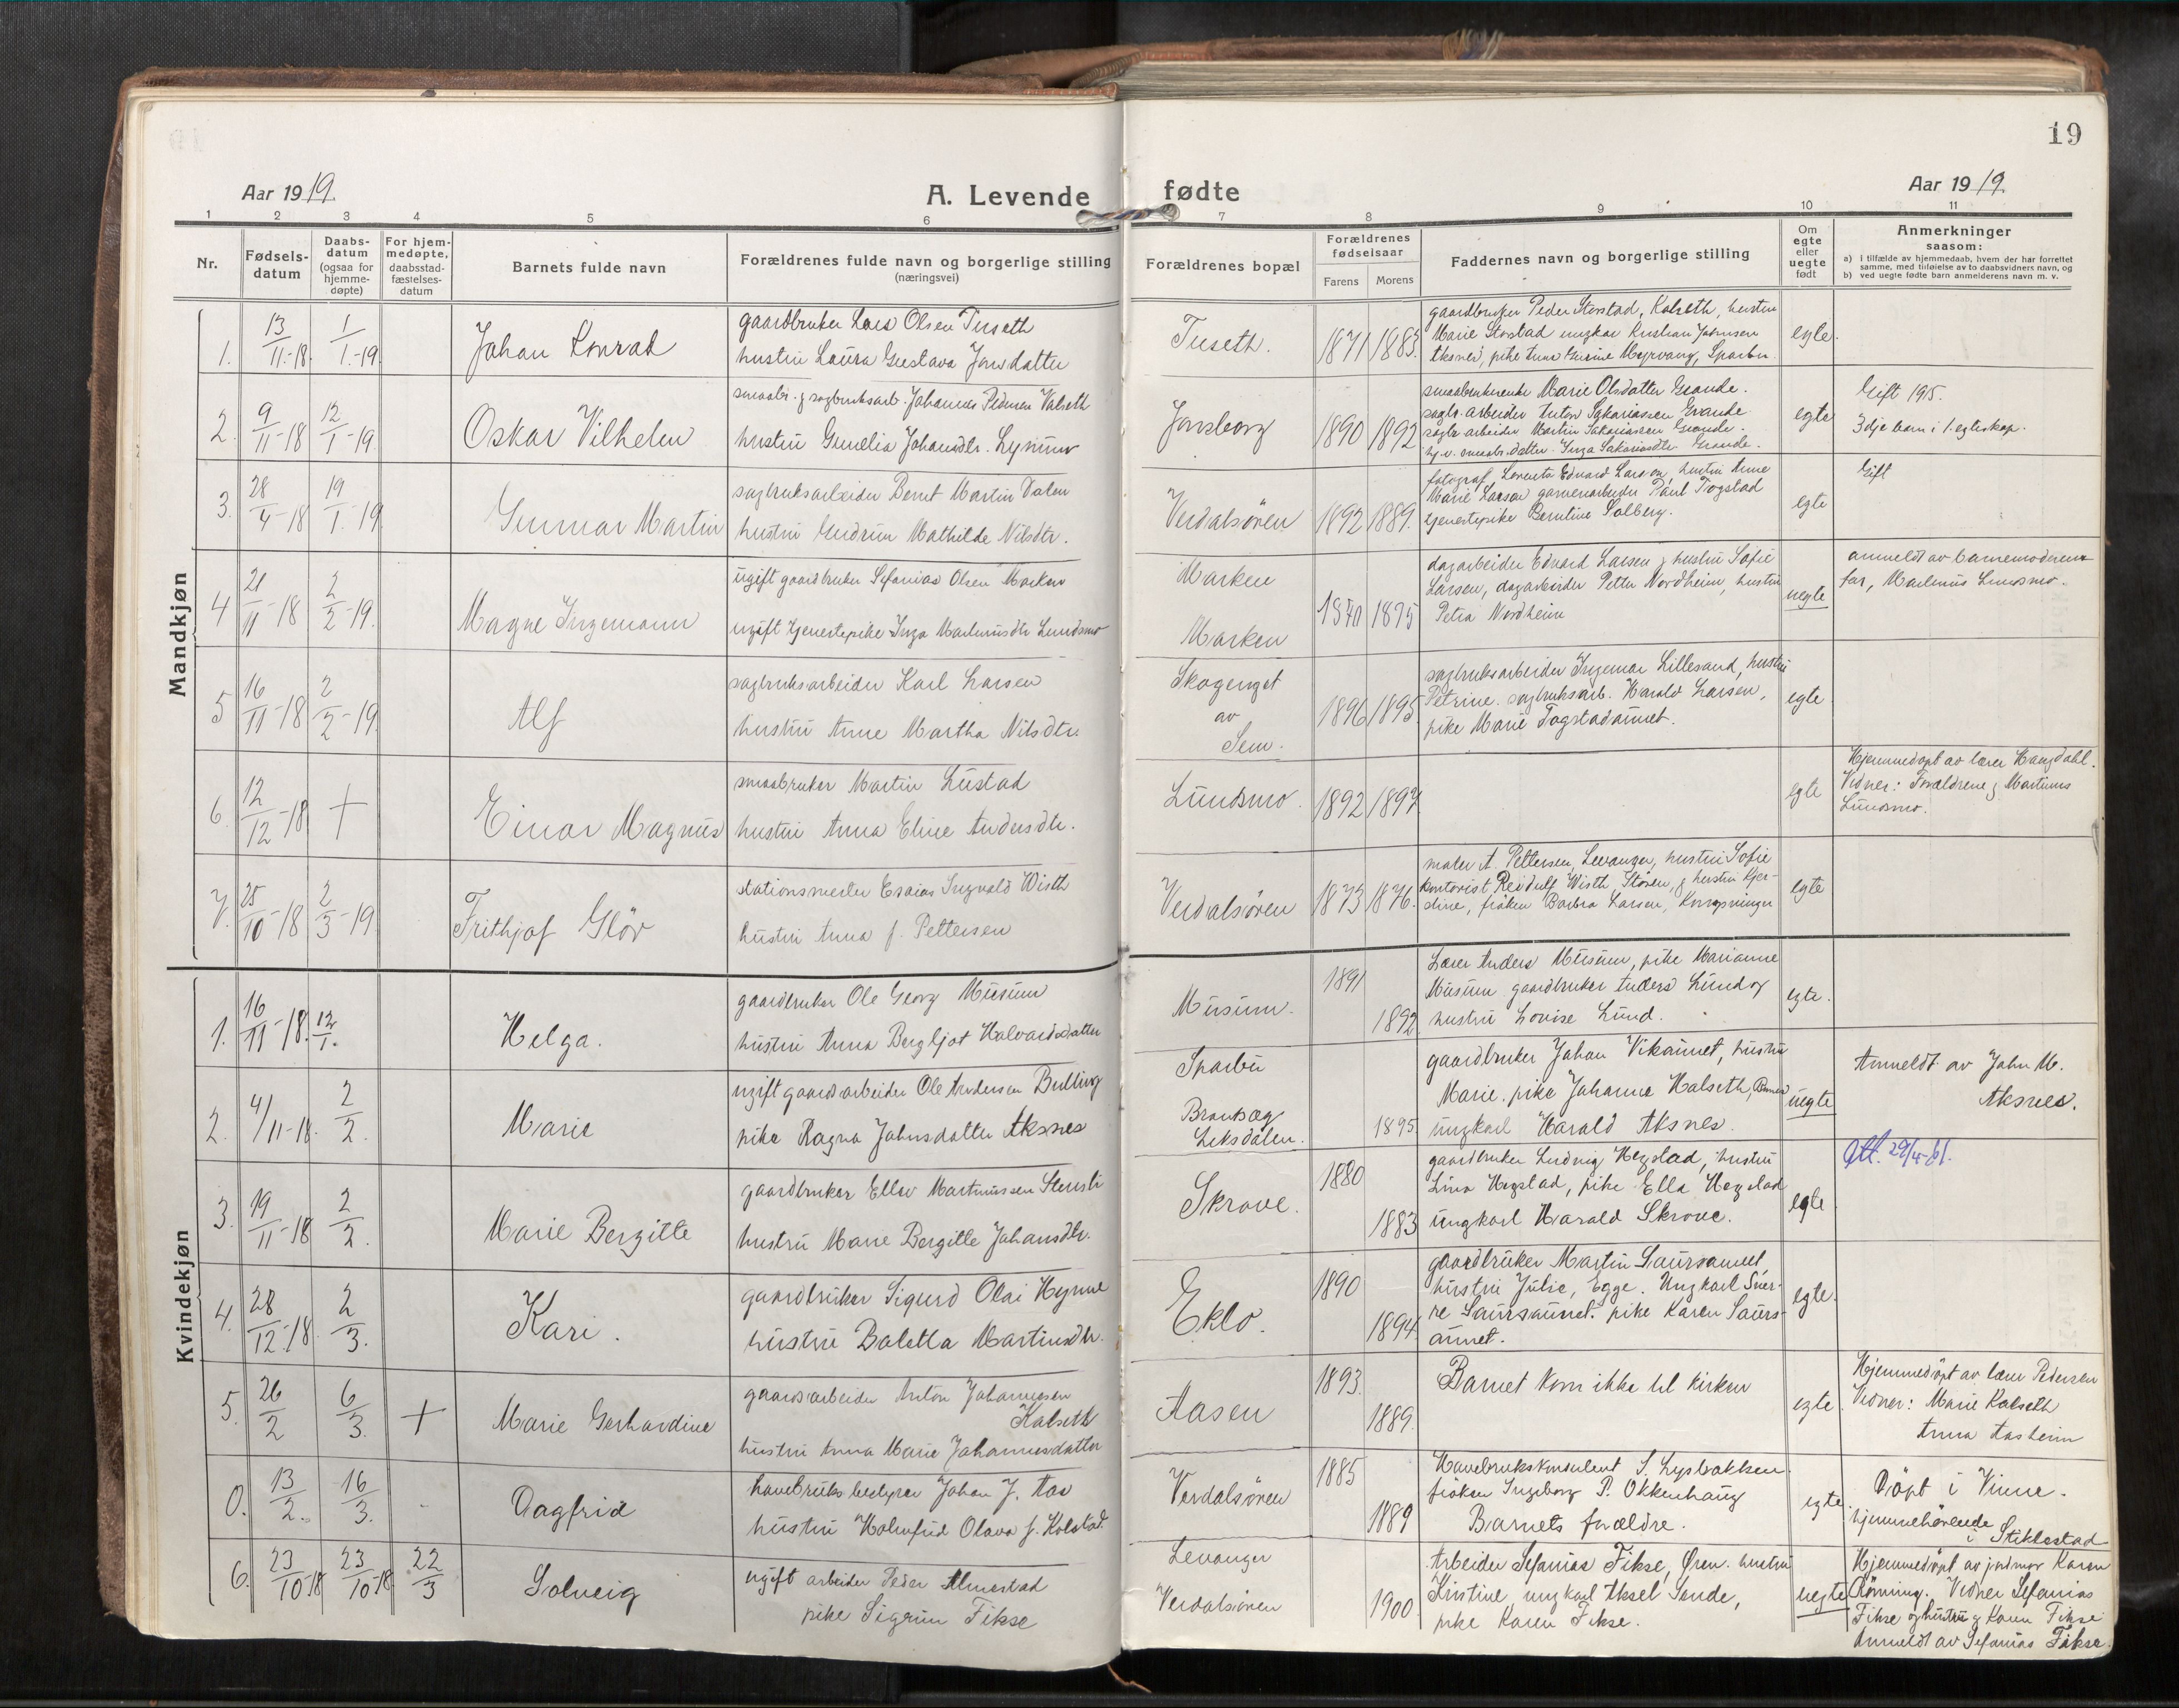 19
Aar 1919.
A. Levende fødte
Aar 1919.
1 2 3 4 5 6 7 8 9 10 11
Nr.
Fødsels-
datum
Daabs-
datum
(ogsaa for
hjemme-
døpte)
For hjem-
medøpte,
daabsstad-
fæstelses-
datum
Barnets fulde navn
Forældrenes fulde navn og borgerlige stilling
(næringsvei)
Forældrenes bopæl
Forældrenes
fødselsaar
Farens Morens
Faddernes navn og borgerlige stilling
Om
egte
eller
uegte
født
Anmerkninger
saasom:
a) i tilfælde av hjemmedaab, hvem der har forrettet
samme, med tilføielse av to daabsvidners navn, og
b) ved uegte fødte barn anmelderens navn m. v.
Mandkjøn
1. 13/11-18. 1/1-19. Johan Konrad
gaardbruker Lars Olsen Tuseth
hustru Laura Gustava Jonsdatter
Tuseth. 1871 1883.
gaardbruker Peder Storstad, Kalseth, hustru
Marie Storstad ungkar Kristian Johnsen
Aksnes, pike Anna Gurine Myrvang, Sparbu
egte.
2. 9/11-18 12/1-19. Oskar Vilhelm
smaabr. & sagbruksarb. Johannes Pedersen Valseth
hustru Gunelia Johansdtr. Lyninn
Jonsborg 1890 1892
smaabrukerenke Marie Olsdatter Grande.
sagbr. arbeider Anton Sakariassen Grande
sagbr arbeider Martin Sakariassen Grande.
hj. v. smaabr. datter Inga Sakariasdtr Grande.
egte
Gift 1915.
3dje barn i 1. egteskap.
3. 28/4-18 19/1-19 Gunnar Martin
sagbruksarbeider Bernt Martin Dalen
hustru Gudrun Mathilde Nilsdtr.
Verdalsören 1892 1889.
fotograf Lorents Edvard Larson, hustru Anne
Marie Larson garveriarbeider Paul Togstad
tjenestepike Berntine Solberg.
egte
Gift
4 21/11-18 2/2-19. Magne Ingemann
ugift gaardbruker Sefanias Olsen Marken
ugift tjenestepike Inga Marhinusdtr Lundsmo
Marken
Marken
1870 1895
dagarbeider Edvard Larsen & hustru Sofie
Larsen, dagarbeider Petter Nordheim, hustru
Petra Nordheim
uegte
anmeldt av barnemoderens
far, Marhinus Lundsmo.
5 16/11-18 2/2-19. Alf
sagbruksarbeider Karl Larsen
hustru Anne Martha Nilsdtr.
Skogenget
av
Sem.
1896 1895.
sagbruksarbeider Ingemar Lillesand, hustru
Petrine. sagbruksarb. Harald Larsen,
pike Marie Togstadaunet.
egte
6. 12/12-18 + Einar Magnus
smaabruker Martin Lustad
hustru Anna Eline Andersdtr.
Lundsmo. 1892 1897.
egte
Hjemmedöpt av lærer Haugdahl.
Vidner: Forældrene & Martinus
Lundsmo.
7. 25/10-18 2/3-19. Frithjof Glöv
stationsmester Esaias Ingvald Wisth
hustru Anna f. Pettersen
Verdalsören 1873 1876.
maler A. Pettersen, Levanger, hustru Sofie
kontorist Reidulf Wisth, Stören, & hustru Gjer-
dine, fröken Barbra Larsen, Kongsvinger
egte
Kvindekjøn
1. 16/11-18. 12/1. Helga.
gaardbruker Ole Georg Müsum
hustru Anna Bergljot Halvardsdatter
Müsum. 1891 1892.
Lærer Anders Müsum, pike Marianne
Müsum gaardbruker Anders Lund og
hustru Lovise Lund.
egte.
2. 4/11-18. 2/2. Marie
ugift gaardsarbeider Ole Andersen Bulling
pike Ragna Johnsdatter Aksnes
Sparbu
Brantsæg
Leksdalen.
1895.
gaardbruker Johan Vikaunet, hustru
Marie. pike Johanna Halseth,
ungkarl Harald Aksnes.
uegte
Anmeldt av John M.
Aksnes.
3. 19/11-18 2/2. Marie Bergitte
gaardbruker Ellev Martinussen Stensli
hustru Marie Bergitte Johansdtr.
Skrove. 1880 1883
gaardbruker Ludvig Hegstad, hustru
Lina Hegstad, pike Ella Hegstad
ungkarl Harald Skrove.
egte.
Att. 29/4-61.
4. 28/12-18. 2/3. Kari.
gaardbruker Sigurd Olai Hynne
hustru Baletta Martinsdtr.
Eklo. 1890 1894.
gaardbruker Martin Saursaunet,
hustru Julie, Egge. Ungkarl Sver-
re Saursaunet. pike Karen Saurs-
aunet.
egte.
5. 26/2 6/3. + Marie Gerhardine
gaardsarbeider Anton Johannesen
Kalseth
hustru Anna Marie Johannesdatter
Aasen 1893. 1889.
Barnet kom ikke til kirken
egte.
Hjemmedöpt av lærer Pedersen
Vidner: Marie Kalseth
Anna Aasheim
0. 13/2. 16/3. Dagfrid
havebruksbestyrer Johan J. Aas
hustru Holmfrid Olava f. Kolstad.
Verdalsören 1885 1889
Havebrukskonsulent S. Lysbakken.
fröken Ingeborg P. Okkenhaug
Barnets forældre.
egte.
Döpt i Vinne.
hjemmehörende
i Stiklestad
6. 23/10-18 23/10-18. 22/3 Solveig
ugift arbeider Peder Almestad
pike Sigrun Fikse
Levanger
Verdalsören
1900.
Arbeider Sefanias Fikse, Ören. hustru
Kristine, ungkarl Aksel Sende,
pike Karen Fikse.
uegte
Hjemmedöpt av jordmor Karen
Rönning. Vidner Sefanias
Fikse og hustru & Karen Fikse
Anmeldt av Sefanias Fikse.